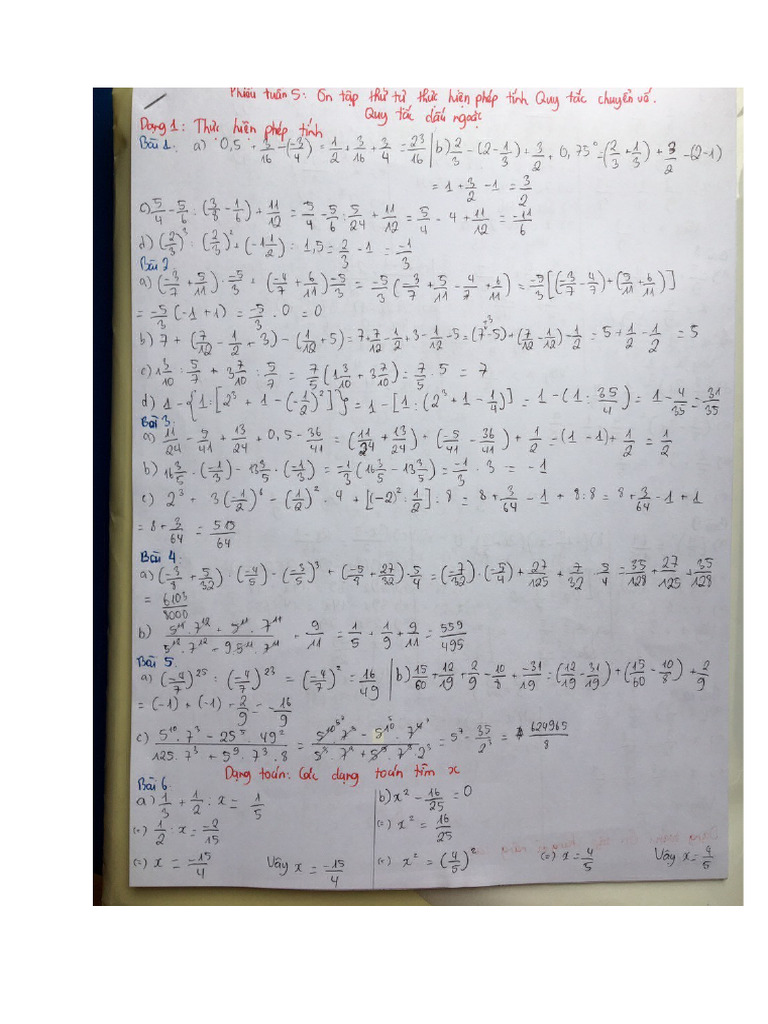 Phiếu tuần 5: Ôn tập thứ tự thực hiện phép tính Quy tắc chuyển vế.
Quy tắc dấu ngoặc
Dạng 1: Thực hiện phép tính
Bài 1: a) 0,5 + 3/16 - (-3/4) = 1/2 + 3/16 + 3/4 = 23/16 | b) 2/3 - (2 - 1/3) + 3/2 + 0,75° = (2/3 + 1/3) + 3/2 - (2-1)
= 1 + 3/2 - 1 = 3/2
c) 5/4 - 5/6 : (3/8 - 1/6) + 11/12 = 5/4 - 5/6 : 5/24 + 11/12 = 5/4 - 4 + 11/12 = -11/6
d) (2/3)³ : (2/3)² + (-1 1/2) : 1,5 = 2/3 - 1 = -1/3
Bài 2
a) (-3/7 + 5/11) · -5/3 + (-4/7 + 6/11) · -5/3 = -5/3 (-3/7 + 5/11 - 4/7 + 6/11) = -5/3 [(-3/7 - 4/7) + (5/11 + 6/11)]
= -5/3 (-1 + 1) = -5/3 . 0 = 0
b) 7 + (7/12 - 1/2 + 3) - (1/12 + 5) = 7 + 7/12 - 1/2 + 3 - 1/12 - 5 = (7 +3 - 5) + (7/12 - 1/12) - 1/2 = 5 + 1/2 - 1/2 = 5
c) 1 3/10 : 5/7 + 3 7/10 : 5/7 = 7/5 (1 3/10 + 3 7/10) = 7/5 · 5 = 7
d) 1 - {1 : [2³ + 1 - (-1/2)²]} = 1 - [1 : (2³ + 1 - 1/4)] = 1 - (1 : 35/4) = 1 - 4/35 = 31/35
Bài 3
a) 11/24 - 9/41 + 13/24 + 0,5 - 36/41 = (11/24 + 13/24) + (-5/41 - 36/41) + 1/2 = (1 - 1) + 1/2 = 1/2
b) 16 3/5 · (-1/3) - 13 3/5 · (-1/3) = -1/3 (16 3/5 - 13 3/5) = -1/3 · 3 = -1
c) 2³ + 3(-1/2)⁶ - (1/2)² · 4 + [(-2)² : 1/2] : 8 = 8 + 3/64 - 1 + 8 : 8 = 8 + 3/64 - 1 + 1
= 8 + 3/64 = 515/64
Bài 4:
a) (-3/8 + 5/32) · (-4/5) - (-3/5)³ + (-5/8 + 27/32) · 5/4 = (-7/32) · (-5/4) + 27/125 + 7/32 · 5/4 = 35/128 + 27/125 + 35/128
= 6103/8000
b) 5¹¹ . 7¹² + 5¹¹ . 7¹¹ / 5¹² . 7¹² + 9.5¹¹ . 7¹¹ + 9/11 = 1/5 + 1/9 + 9/11 = 559/495
Bài 5:
a) (-4/7)²⁵ : (-4/7)²³ = (-4/7)² = 16/49 | b) 15/60 + 12/19 + 2/9 - 10/8 + -31/19 = (12/19 - 31/19) + (15/60 - 10/8) + 2/9
= (-1) + (-1) + 2/9 = -16/9
c) 5¹⁰ . 7³ - 25⁵ . 49² / 125 . 7³ + 5⁹ . 7³ . 8 = 5⁷ - 35/2³ = 624965/8
Dạng toán: Các dạng toán tìm x
Bài 6:
a) 1/3 + 1/2 : x = 1/5
(=) 1/2 : x = -2/15
(=) x = -15/4 Vậy x = -15/4
b) x² - 16/25 = 0
(=) x² = 16/25
(=) x² = (4/5)² (=) x = 4/5 Vậy x = 4/5